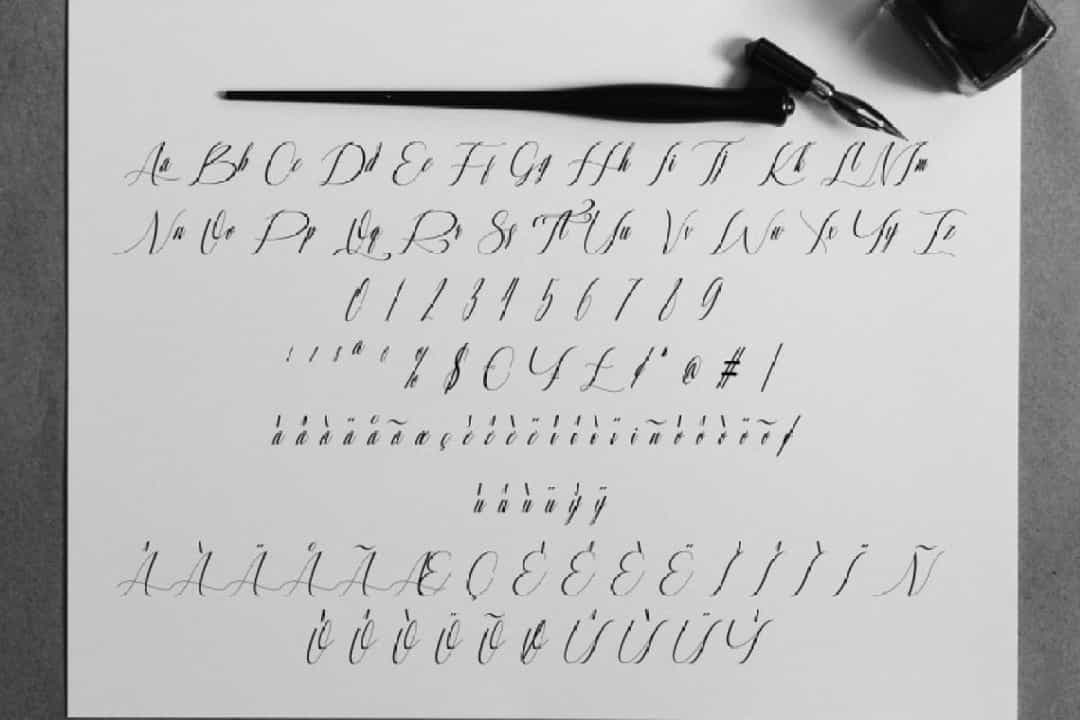 Aa Bb Cc Dd Ee Ff Gg Hh Ii Jj Kk Ll Mm
Nn Oo Pp Qq Rr Ss Tt Uu Vv Ww Xx Yy Zz
0 1 2 3 4 5 6 7 8 9
% $ € ¥ £ @ # /
á â à ä å ã æ ç é ê è ë í î ì ï ı ñ ó ô ò ö õ ø
ú û ù ü ý ÿ
Á À Ä Å Ã Æ Ç É Ê È Ë Í Î Ì Ï Ñ
Ó Ô Ò Ö Õ Ø Ú Ù Ü Ý